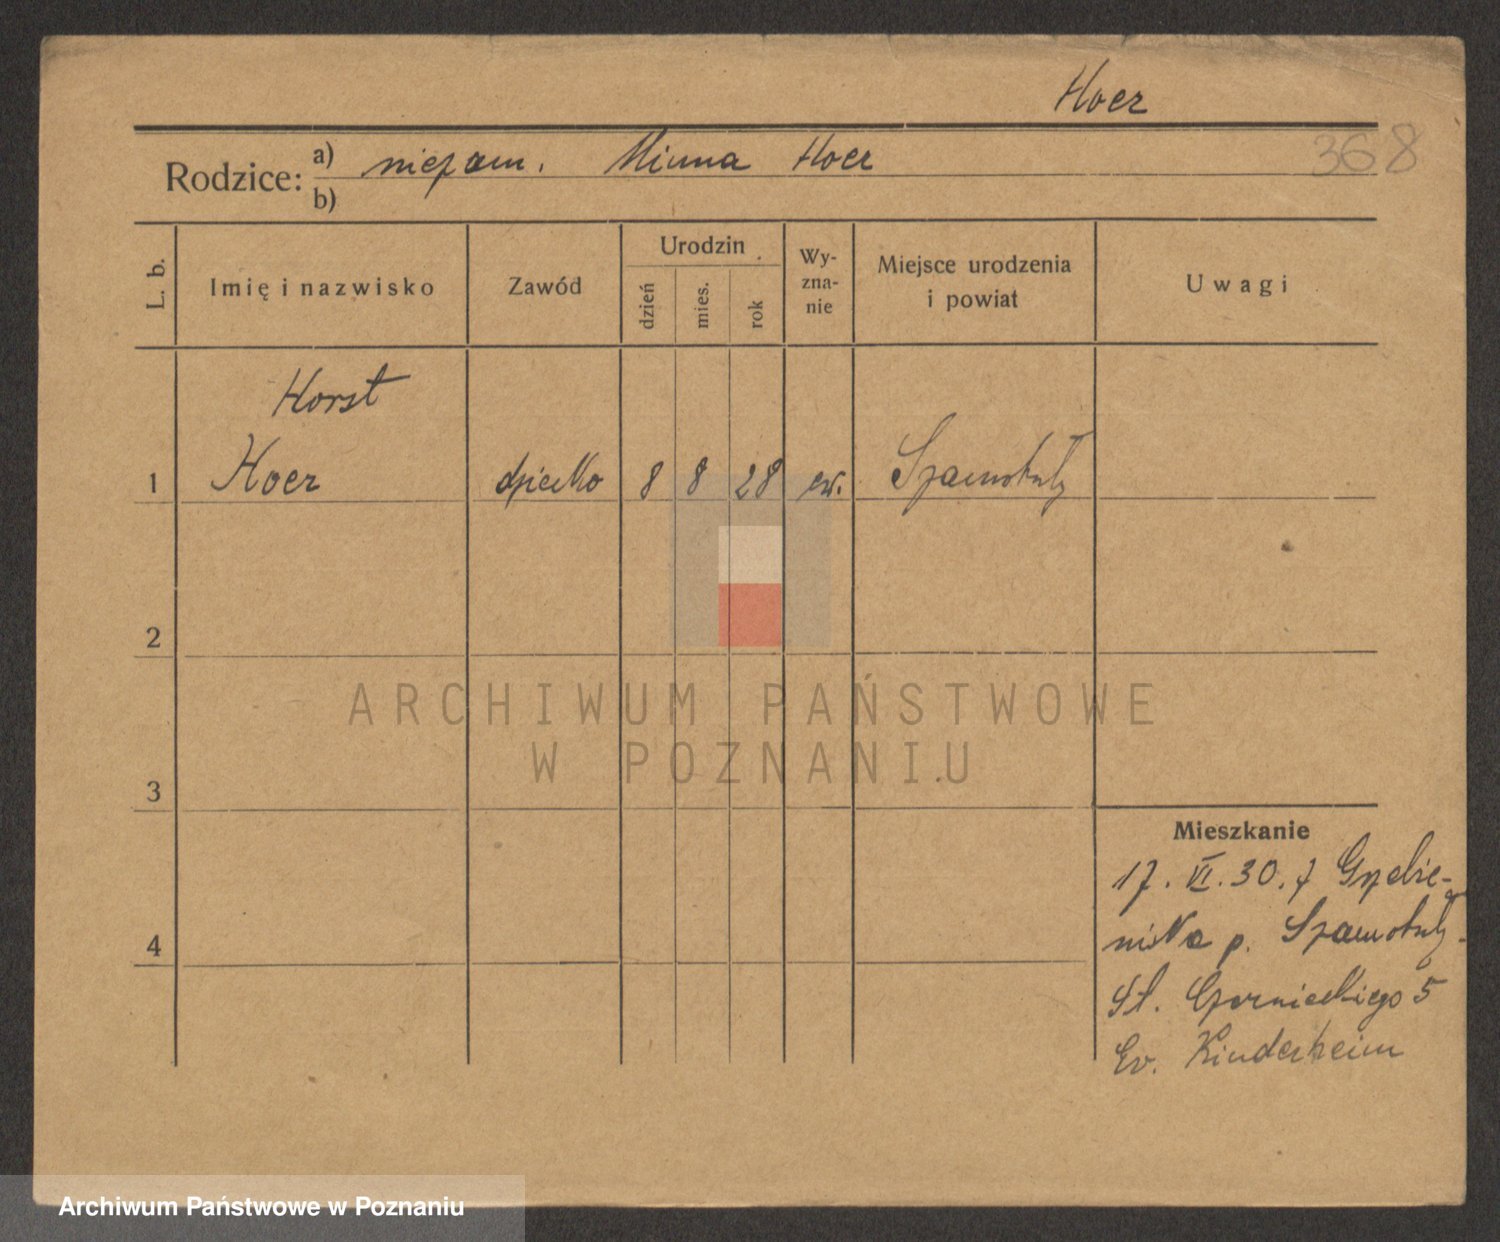 Hoer
368
Rodzice: a) niezam. Minna Hoer
b)
L. b. Imię i nazwisko Zawód Urodzin dzień mies. rok Wy-zna-nie Miejsce urodzenia i powiat Uwagi
Horst
1 Hoer dziecko 8 8 28 ew. Szamotuły
2
ARCHIWUM PAŃSTWOWE
W POZNANIU
3
Mieszkanie
17. VI. 30. z
4
p. Szamotuły
Czarnieckiego 5
Ev. Kinderheim
Archiwum Państwowe w Poznaniu